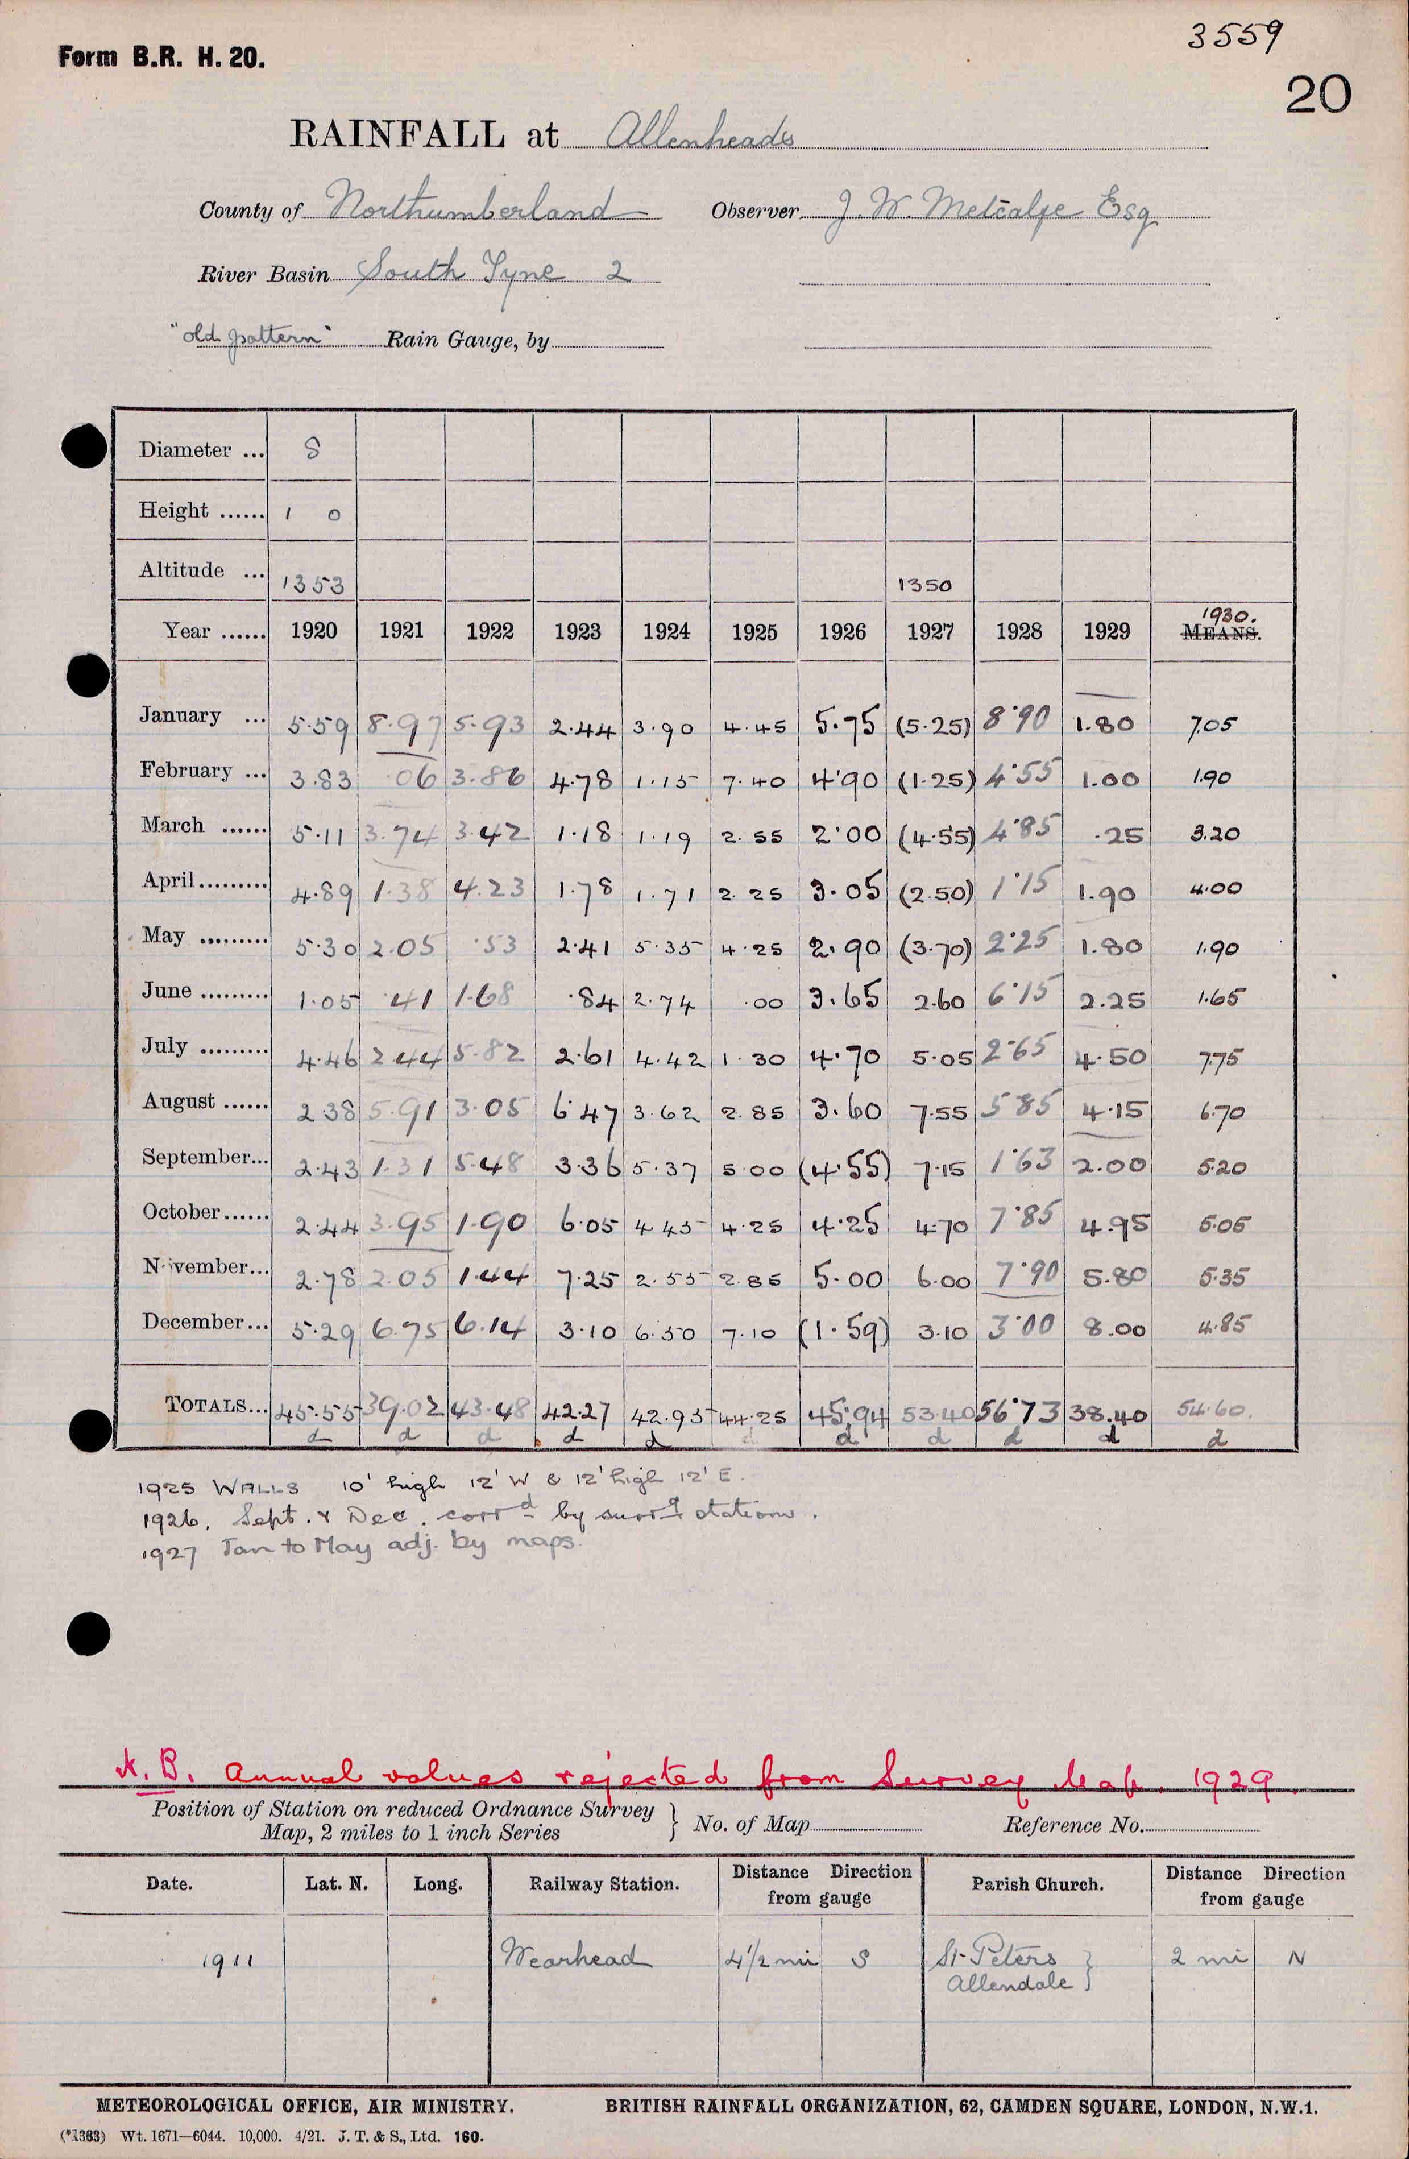 3559
Form B.R. H. 20.
20
RAINFALL at Allenheads
County of Northumberland Observer J. W. Metcalfe Esq
River Basin South Tyne 2
"old pattern" Rain Gauge, by
Diameter ... 8
Height ...... 1 0
Altitude ... 1353 1350
Year ...... 1920 1921 1922 1923 1924 1925 1926 1927 1928 1929 1930. MEANS.
January ... 5.59 8.97 5.93 2.44 3.90 4.45 5.75 (5.25) 8.90 1.80 7.05
February ... 3.83 .06 3.86 4.78 1.15 7.40 4.90 (1.25) 4.55 1.00 1.90
March ...... 5.11 3.74 3.42 1.18 1.19 2.55 2.00 (4.55) 4.85 .25 3.20
April ......... 4.89 1.38 4.23 1.78 1.71 2.25 3.05 (2.50) 1.15 1.90 4.00
May ......... 5.30 2.05 .53 2.41 5.35 4.25 2.90 (3.70) 2.25 1.80 1.90
June ......... 1.05 .41 1.68 .84 2.74 .00 3.65 2.60 6.15 2.25 1.65
July ......... 4.46 2.44 5.82 2.61 4.42 1.30 4.70 5.05 2.65 4.50 7.75
August ...... 2.38 5.91 3.05 6.47 3.62 2.85 3.60 7.55 5.85 4.15 6.70
September... 2.43 1.31 5.48 3.36 5.37 5.00 (4.55) 7.15 1.63 2.00 5.20
October...... 2.44 3.95 1.90 6.05 4.45 4.25 4.25 4.70 7.85 4.95 5.05
November... 2.78 2.05 1.44 7.25 2.55 2.85 5.00 6.00 7.90 5.80 5.35
December... 5.29 6.75 6.14 3.10 6.50 7.10 (1.59) 3.10 3.00 8.00 4.85
TOTALS... 45.55 39.02 43.48 42.27 42.95 44.25 45.94 53.40 56.73 38.40 54.60
d d d d d d d d d d d
1925 WALLS 10' high 12' W & 12' high 12' E.
1926. Sept. & Dec. corrd by surrg stations.
1927 Jan to May adj. by maps.
N.B. Annual values rejected from Survey Map. 1929.
Position of Station on reduced Ordnance Survey Map, 2 miles to 1 inch Series } No. of Map Reference No.
Date. Lat. N. Long. Railway Station. Distance Direction from gauge Parish Church. Distance Direction from gauge
1911 Wearhead 4½ mi S St Peters Allendale } 2 mi N
METEOROLOGICAL OFFICE, AIR MINISTRY. BRITISH RAINFALL ORGANIZATION, 62, CAMDEN SQUARE, LONDON, N.W.1.
(*1363) Wt. 1671—6044. 10,000. 4/21. J. T. & S., Ltd. 160.